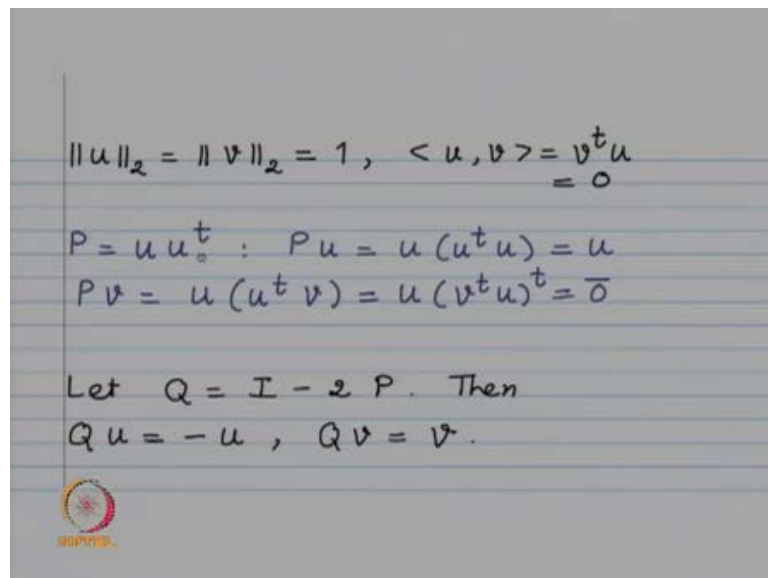 ‖u‖₂ = ‖v‖₂ = 1, <u, v> = vᵗu
= 0
P = u uᵗ : Pu = u (uᵗu) = u
Pv = u (uᵗv) = u (vᵗu)ᵗ = 0̅
Let Q = I - 2 P. Then
Qu = -u, Qv = v.